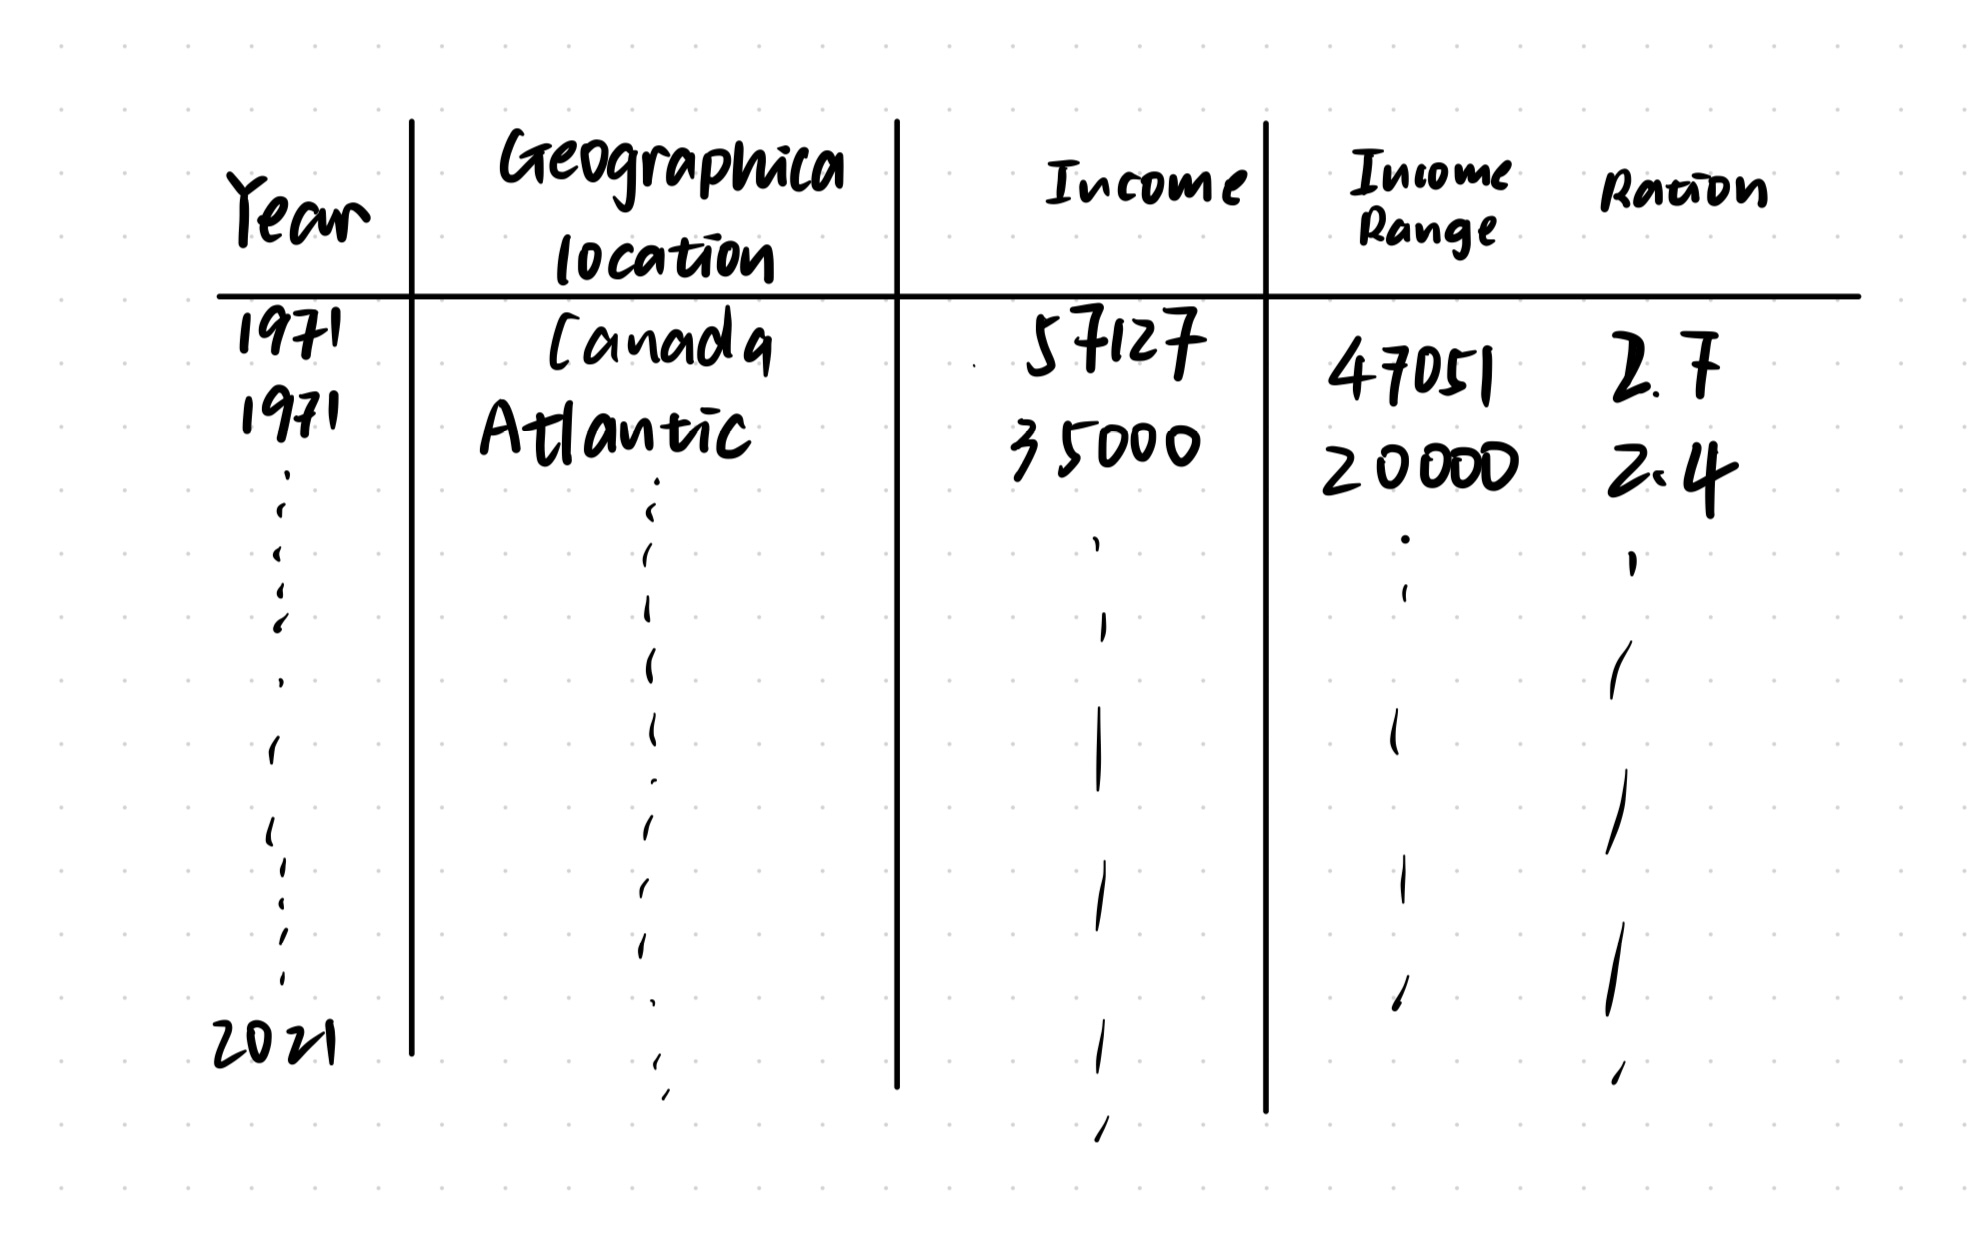 Year Geographica Income Income Ration
location Range
1971 Canada 57127 47051 2.7
1971 Atlantic 35000 20000 2.4
2021